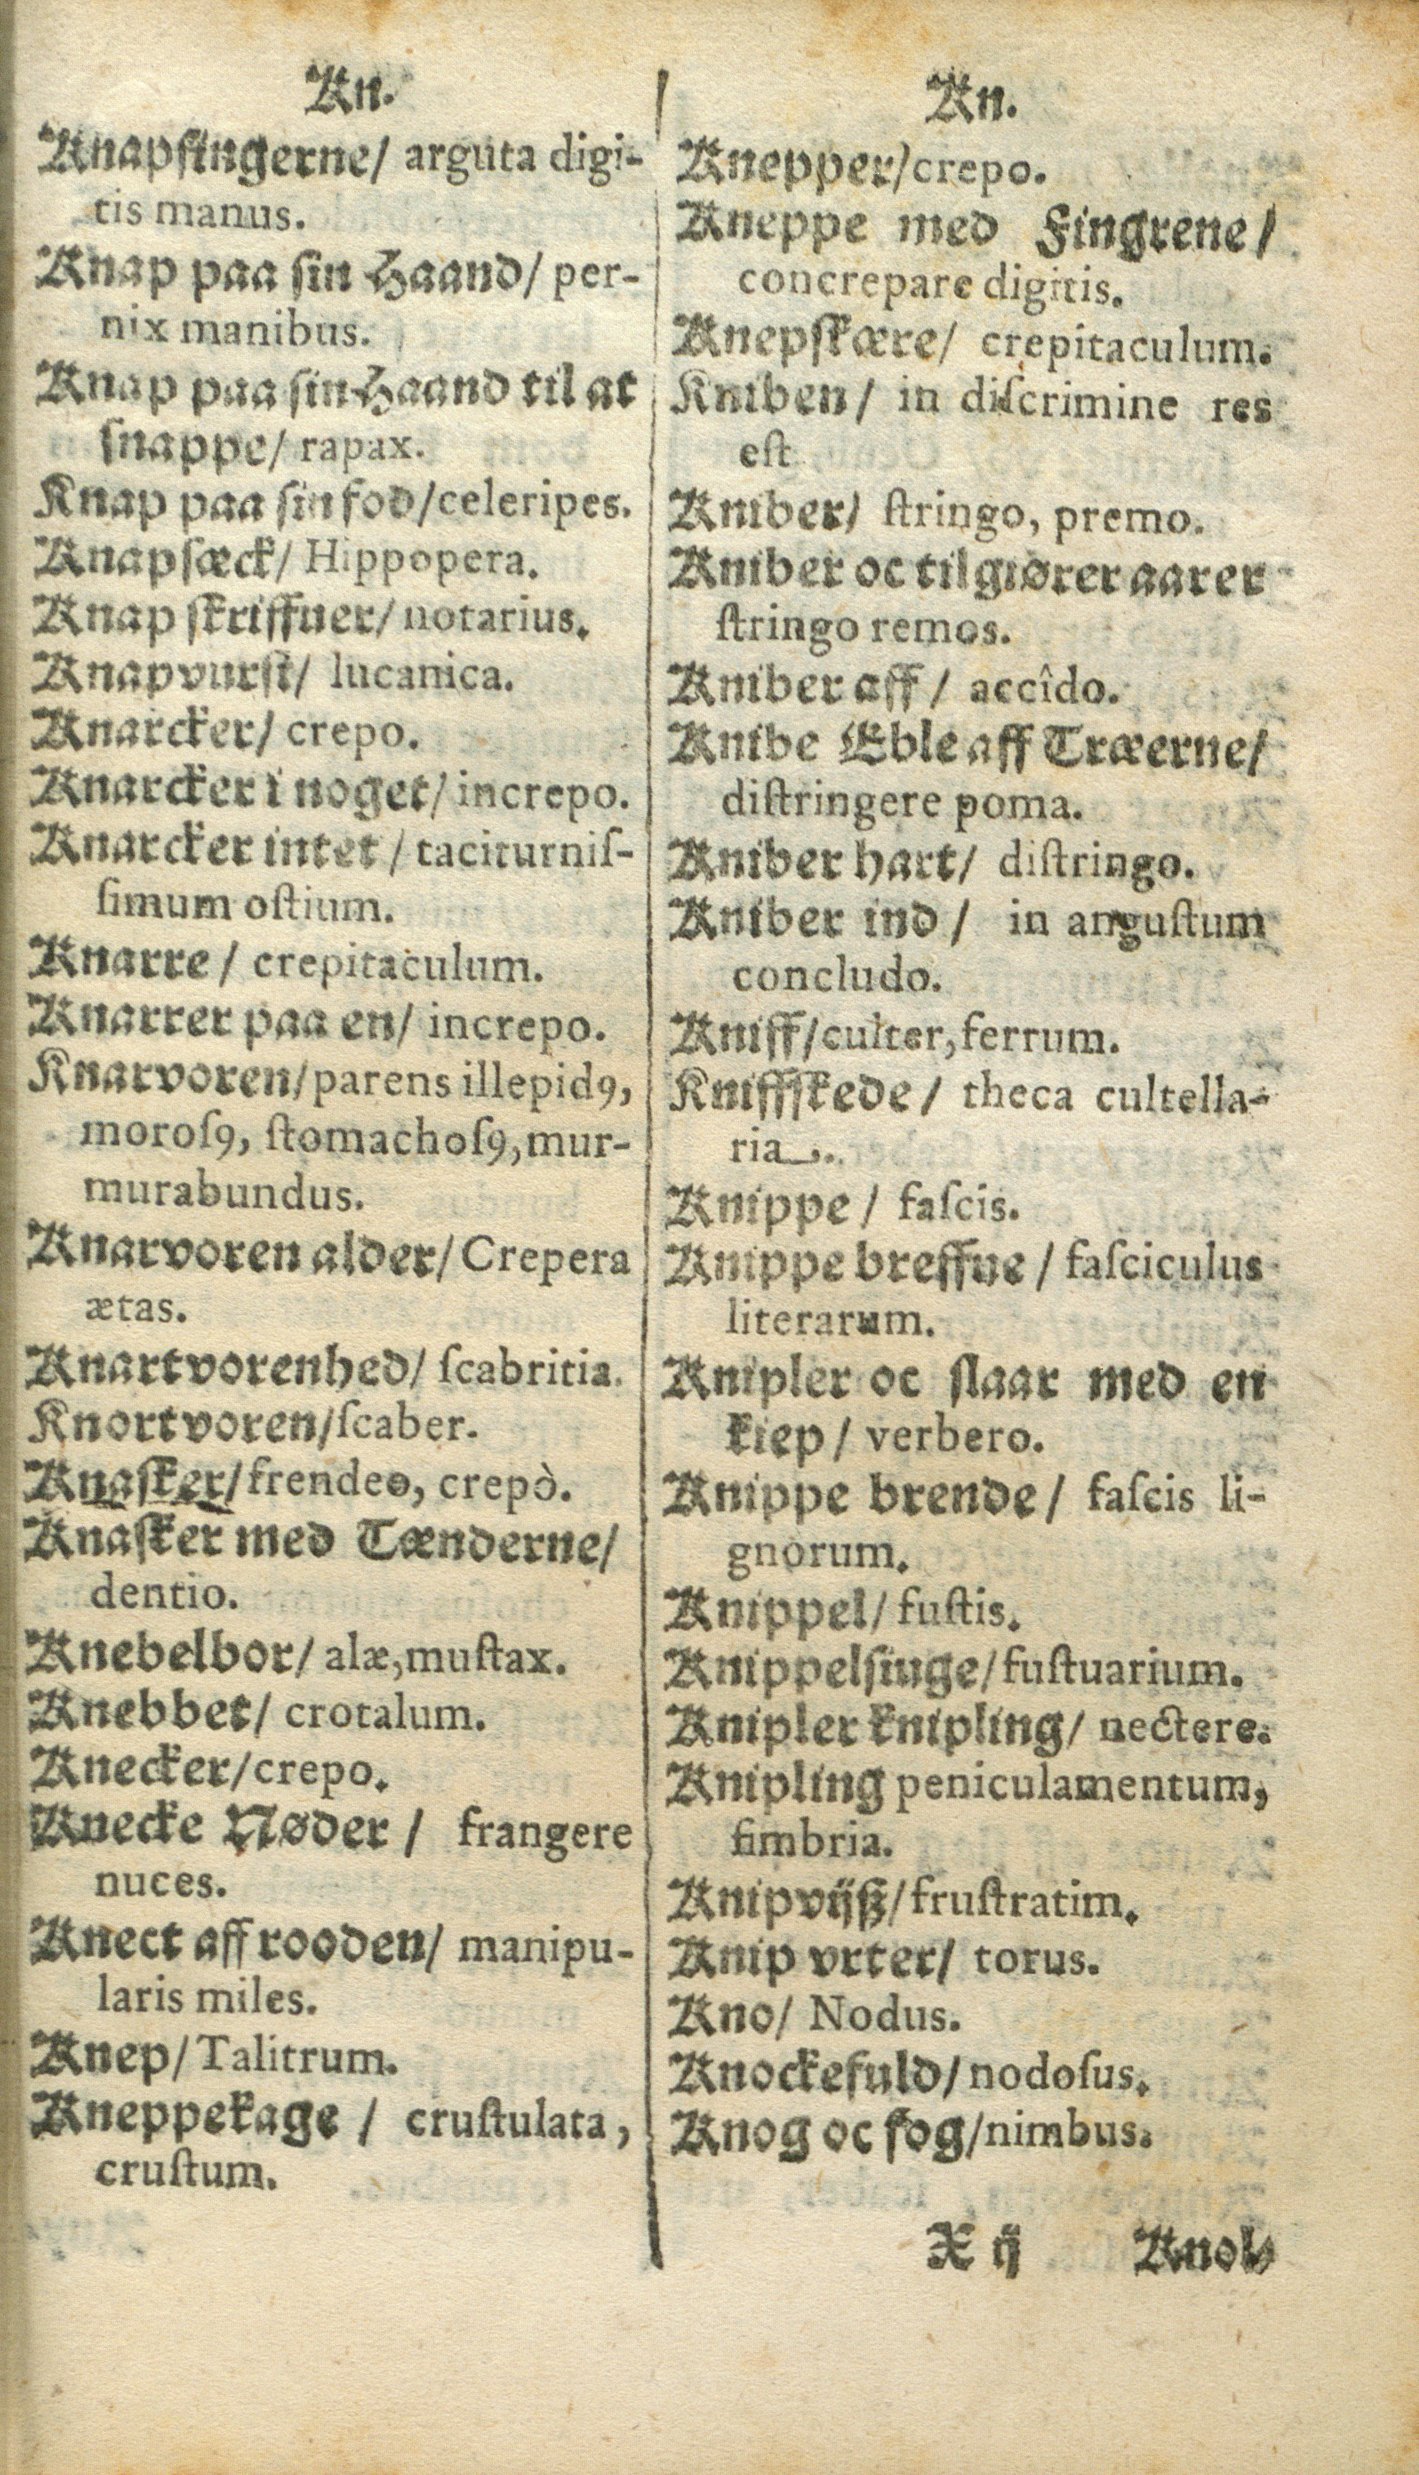 Kn.
Knapfingerne/ arguta digi-
tis manus.
Knap paa ſin Haand/ per-
nix manibus.
Knap paa ſin Haand til at
ſnappe/ rapax.
Knap paa ſin fod/celeripes.
Knapſæck/ Hippopera.
Knap ſkriffuer/ notarius.
Knapvurſt/ lucanica.
Knarcker/ crepo.
Knarcker i noget/ increpo.
Knarcker intet / taciturniſ-
ſimum oſtium.
Knarre/ crepitaculum.
Knarrer paa en/ increpo.
Knarvoren/parens illepidꝯ,
moroſꝯ, ſtomachoſꝯ, mur-
murabundus.
Knarvoren alder/ Crepera
ætas.
Knartvorenhed/ ſcabritia.
Knortvoren/ſcaber.
Knaſker/ frendeo, crepò.
Knaſker med Tænderne/
dentio.
Knebelbor/ alæ, muſtax.
Knebbet/ crotalum.
Knecker/crepo.
Knecke Nøder / frangere
nuces.
Knect aff rooden/ manipu-
laris miles.
Knep/ Talitrum.
Kneppekage / cruſtulata,
cruſtum.
Kn.
Knepper/crepo.
Kneppe med Fingrene/
concrepare digitis.
Knepſkære/ crepitaculum.
Kniben/ in diſcrimine res
eſt
Kniber/ ſtringo, premo.
Kniber oc til giører aarer
ſtringo remos.
Kniber aff / accîdo.
Knibe Eble aff Træerne/
diſtringere poma.
Kniber hart/ diſtringo.
Kniber ind / in anguſtum
concludo.
Kniff/culter, ferrum.
Kniffſkede/ theca cultella-
ria.
Knippe/ faſcis.
Knippe breffue / faſciculus
literarum.
Knipler oc ſlaar med en
kiep/ verbero.
Knippe brende/ faſcis li-
gnorum.
Knippel/ fuſtis.
Knippelſuge/fuſtuarium.
Knipler knipling/ nectere.
Knipling peniculamentum,
fimbria.
Knipvijß/fruſtratim.
Knip vrter/ torus.
Kno/ Nodus.
Knockefuld/nodoſus.
Knog oc fog/nimbus.
X ij
Knol-